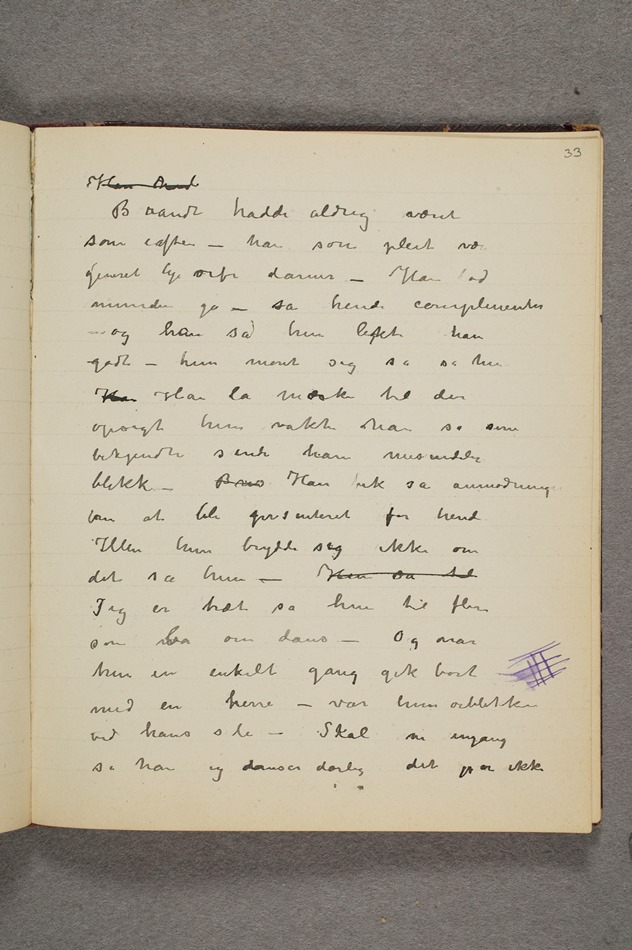 33
Han Brud
Brandt hadde aldrig været
som iaften — han som pleit væ
generet lige overfor damer — Han lod
munden gå — sa hende complimenter
— og han så hun likte han
godt — hun moret sig sa sa hun
Han Han la mærke til den
opsigt hun vakte han sa sine
bekjendte sende ham misundelige
blikk — Han fik sa anmodninger
om at bli præsenteret for hende
Men hun brydde sig ikke om
det sa hun — Han sa til
Jeg er træt sa hun til flere
som ba om dans — Og naar
hun en enkelt gang gik bort
med en herre — var hun oieblikket
ved hans side — Skal vi engang
sa han jeg danser darlig det gjør ikke